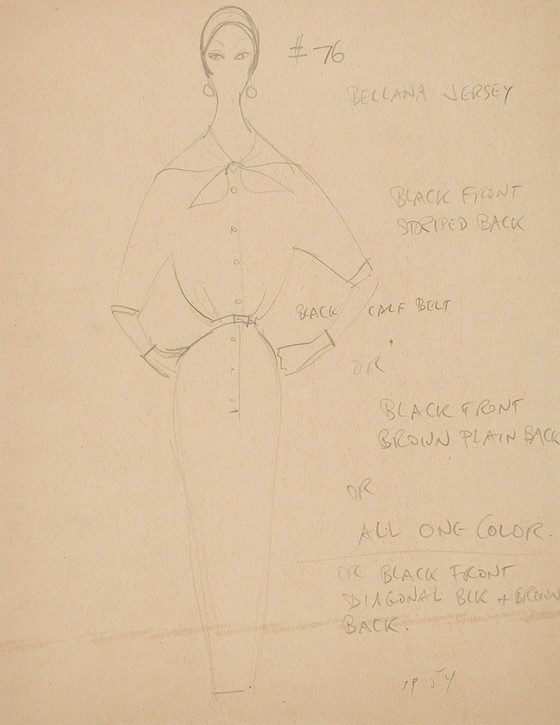 # 76
BELLANA JERSEY
BLACK FRONT
STRIPED BACK
BLACK CALF BELT
OR
BLACK FRONT
BROWN PLAIN BACK
OR
ALL ONE COLOR.
OR BLACK FRONT
DIAGONAL BLK + BROWN
BACK.
1954